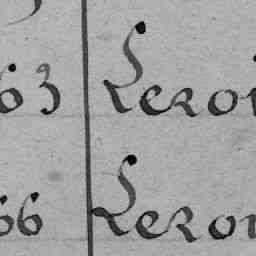 63 Leroi
66 Leron